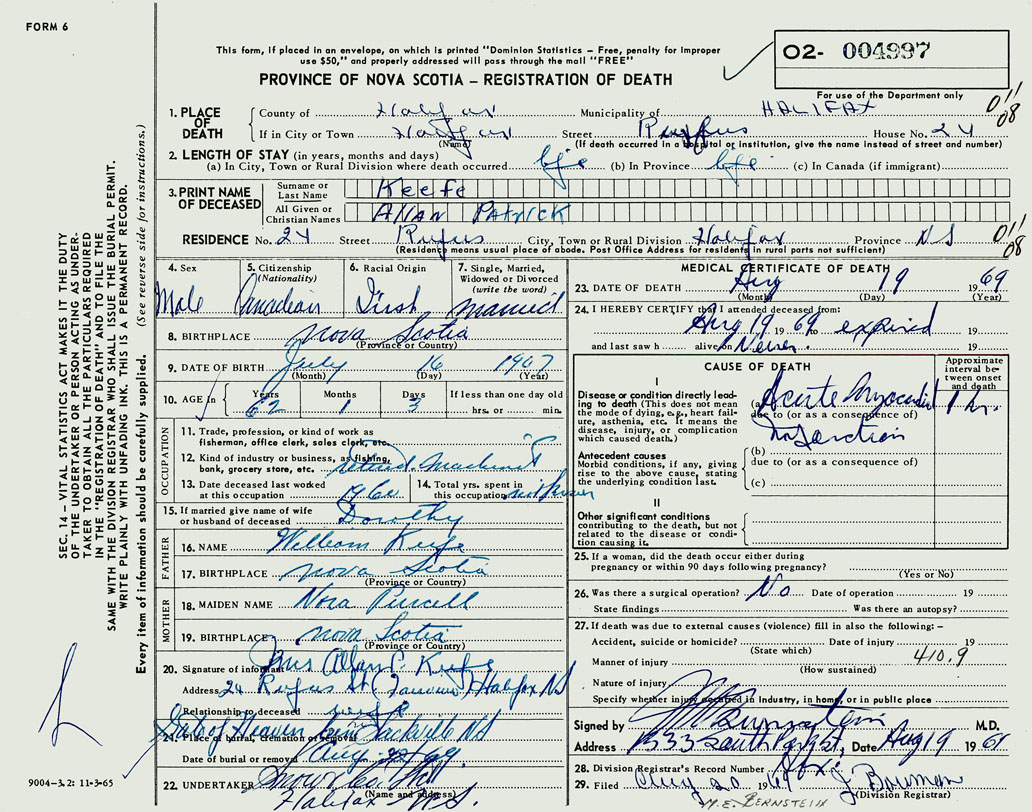 FORM 6
This form, if placed in an envelope, on which is printed "Dominion Statistics – Free, penalty for improper
use $50," and properly addressed will pass through the mail "FREE"
PROVINCE OF NOVA SCOTIA – REGISTRATION OF DEATH
O2- 004997
For use of the Department only
011
08
1. PLACE OF DEATH
County of Halifax Municipality of HALIFAX
If in City or Town Halifax Street Rufus House No. 24
(Name) (If death occurred in a hospital or institution, give the name instead of street and number)
2. LENGTH OF STAY (in years, months and days)
(a) In City, Town or Rural Division where death occurred life (b) In Province life (c) In Canada (if immigrant)
3. PRINT NAME OF DECEASED
Surname or Last Name Keefe
All Given or Christian Names Allan Patrick
RESIDENCE No. 24 Street Rufus City, Town or Rural Division Halifax Province NS
(Residence means usual place of abode. Post Office Address for residents in rural parts not sufficient)
011
08
4. Sex Male
5. Citizenship (Nationality) Canadian
6. Racial Origin Irish
7. Single, Married, Widowed or Divorced (write the word) married
8. BIRTHPLACE Nova Scotia
(Province or Country)
9. DATE OF BIRTH July 16 1907
(Month) (Day) (Year)
10. AGE in Years 62 Months 1 Days 3 If less than one day
hrs. or min.
OCCUPATION
11. Trade, profession, or kind of work as
fisherman, office clerk, sales clerk, etc.
12. Kind of industry or business, as fishing,
bank, grocery store, etc. retired Machinist
13. Date deceased last worked
at this occupation 1960
14. Total yrs. spent in
this occupation not known
15. If married give name of wife
or husband of deceased Dorothy
FATHER
16. NAME William Keefe
17. BIRTHPLACE Nova Scotia
(Province or Country)
MOTHER
18. MAIDEN NAME Nora Purcell
19. BIRTHPLACE Nova Scotia
(Province or Country)
20. Signature of informant Mrs Allan P. Keefe
Address 24 Rufus St (Fairview) Halifax NS
Relationship to deceased wife
21. Place of burial, cremation or removal Gate of Heaven Cem Sackville NS
Date of burial or removal Aug 22 69
22. UNDERTAKER Snow & Co Ltd
(Name and address)
Halifax N.S.
MEDICAL CERTIFICATE OF DEATH
23. DATE OF DEATH Aug 19 1969
(Month) (Day) (Year)
24. I HEREBY CERTIFY that I attended deceased from:
Aug 19 19 69 to expired 19
and last saw h alive on Never. 19
CAUSE OF DEATH
Approximate interval between onset and death
I
Disease or condition directly leading to death (This does not
mean the mode of dying, e.g., heart failure, asthenia, etc. It means the
disease, injury, or complication which caused death.)
(a) Acute Myocardial 1 hr.
due to (or as a consequence of)
Infarction
Antecedent causes
Morbid conditions, if any, giving rise to the above cause, stating
the underlying condition last.
(b)
due to (or as a consequence of)
(c)
II
Other significant conditions
contributing to the death, but not
related to the disease or condition causing it.
25. If a woman, did the death occur either during
pregnancy or within 90 days following pregnancy?
(Yes or No)
26. Was there a surgical operation? No Date of operation 19
State findings Was there an autopsy?
27. If death was due to external causes (violence) fill in also the following: –
Accident, suicide or homicide? Date of injury 19
(State which)
410.9
Manner of injury
(How sustained)
Nature of injury
Specify whether injury occurred in Industry, in home, or in public place
Signed by M Bernstein M.D.
Address 1333 South Park St, Date Aug 19 1969
28. Division Registrar's Record Number
29. Filed Aug 20 1969 J Bowman
(Division Registrar)
M. E. BERNSTEIN
SEC. 14 – VITAL STATISTICS ACT MAKES IT THE DUTY
OF THE UNDERTAKER OR PERSON ACTING AS UNDER-
TAKER TO OBTAIN ALL THE PARTICULARS REQUIRED
IN THE "REGISTRATION OF DEATH" AND FILE THE
SAME WITH THE DIVISION REGISTRAR WHO SHALL ISSUE THE BURIAL PERMIT.
WRITE PLAINLY WITH UNFADING INK. THIS IS A PERMANENT RECORD.
Every item of information should be carefully supplied. (See reverse side for instructions.)
9004-3.2: 11-3-65